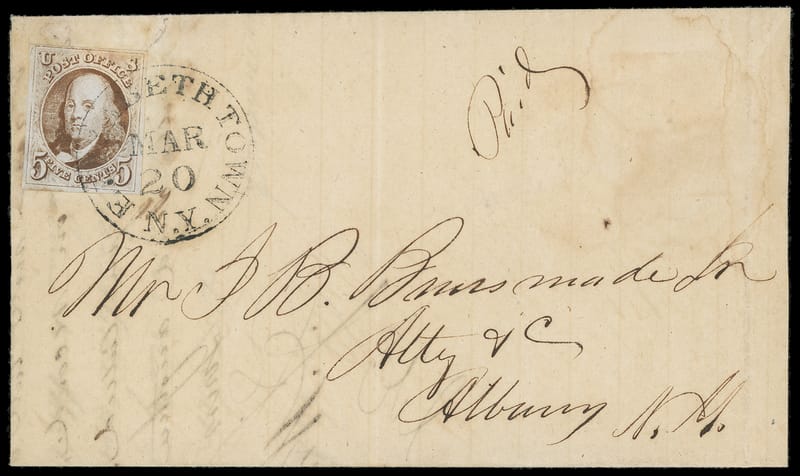 U S
POST OFFICE
5 FIVE CENTS 5
E BETH TOWN
MAR
20
N.Y.
Pai'd
Mr J B. Brinsmade Jr
Atty &c
Albany N. Y.